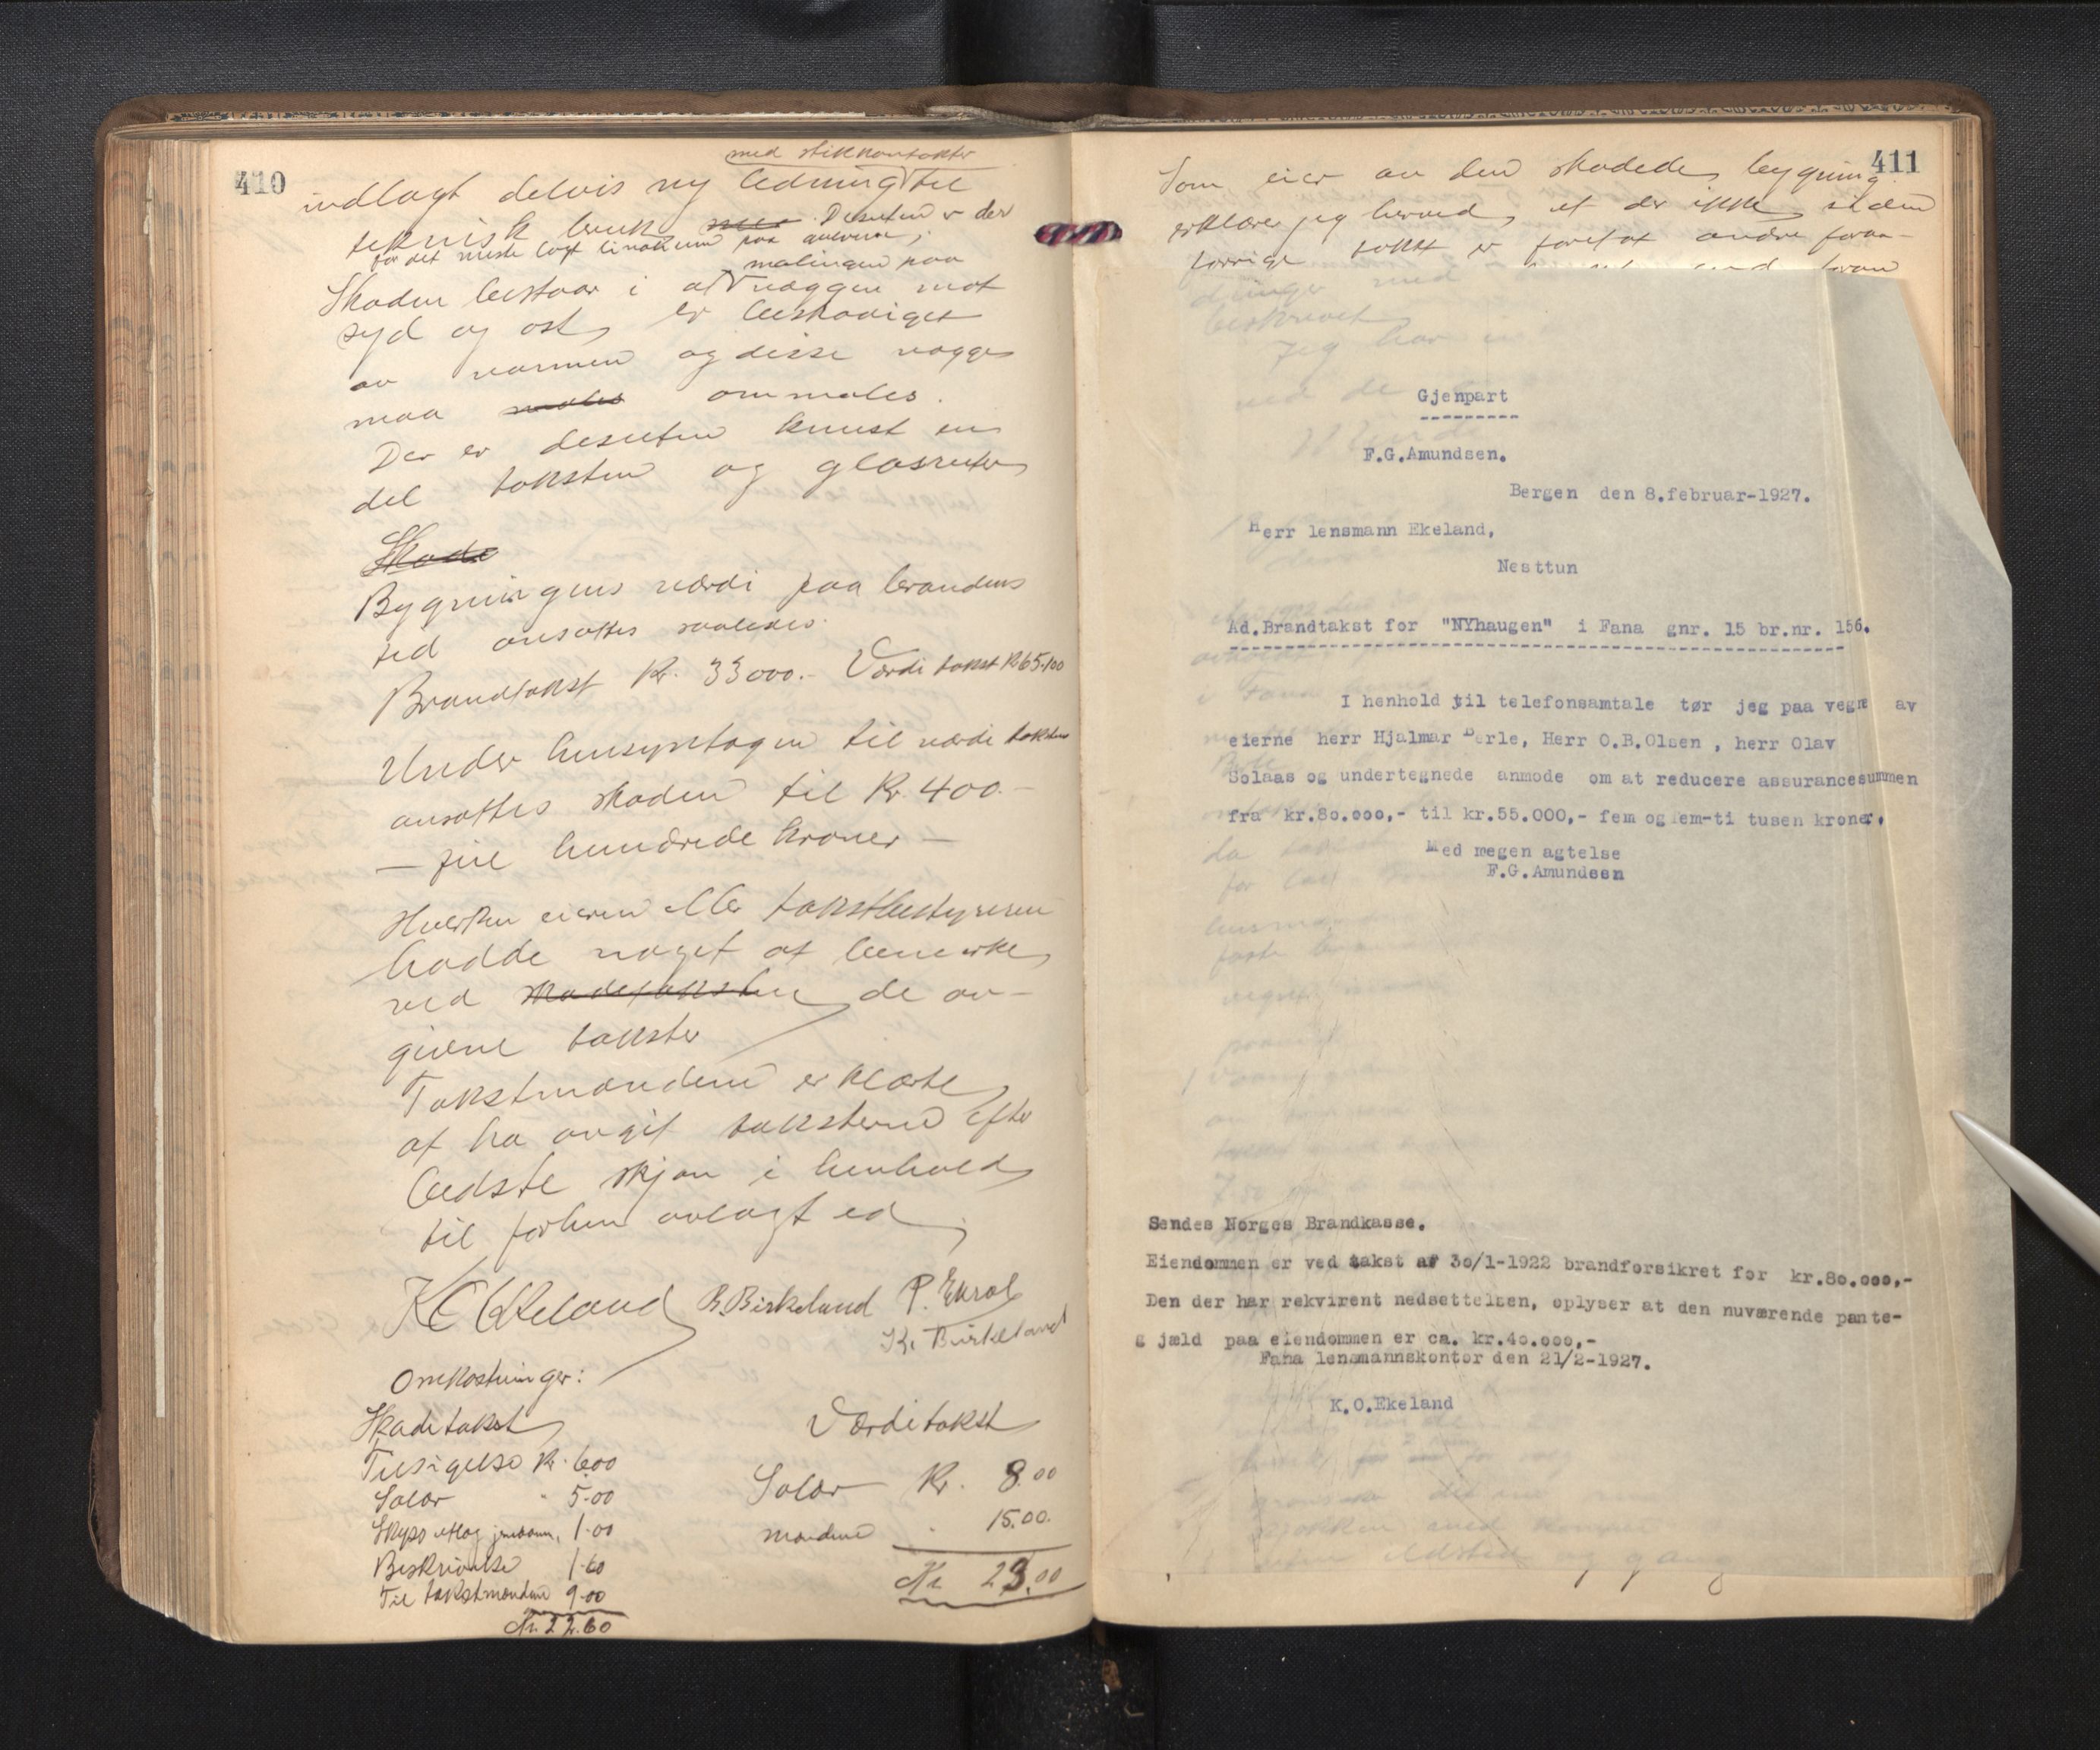 410
med stikkontakter
indlagt delvis ny ledning til
teknisk bruk. Desuten er der
for det meste lagt linoleum paa gulvene,
malingen paa
Skaden bestaar i at væggen mot
syd og øst er beskadiget
av varmen og disse vægge
maa males ommales.
Der er desuten knust en
del taksten og glasruter
Skade
Bygningens værdi paa brandens
tid ansættes saaledes:
Brandtakst Kr. 33000.- Værditakst Kr 65.100
Under hensyntagen til værditaksten
ansættes skaden til Kr. 400.-
- fire hundrede kroner -
Hverken eieren eller takstbestyreren
hadde noget at bemerke
ved skadetaksten de av-
givne takster
Takstmændene erklærte
at ha avgit taksterne efter
bedste skjøn i henhold
til forhen avlagt ed.
K O Ekeland B. Birkeland P. Ekrol
K. Birkeland
Omkostninger:
Skadetakst Værditakst
Tilsigelse Kr. 6.00
Salær " 5.00 Salær Kr. 8.00
Skyss 1.00 mændene " 15.00.
Beskrivelse 1.60 Kr. 23.00
Til takstmændene 9.00
Kr. 22.60
411
Som eier av den skadede bygning
erklærer jeg herved, at der ikke siden
forrige takst er foretat andre foran-
dringer med
beskrevet
Jeg har
ved de
Gjenpart
F.G.Amundsen.
Bergen den 8.februar-1927.
Herr lensmann Ekeland,
Nesttun
Ad.Brandtakst for "NYhaugen" i Fana gnr. 15 br.nr. 156.
I henhold til telefonsamtale tør jeg paa vegne av
eierne herr Hjalmar Berle, Herr O.B.Olsen , herr Olav
Solaas og undertegnede anmode om at reducere assurancesummen
fra kr.80.000,- til kr.55.000,- fem og fem-ti tusen kroner.
Med megen agtelse
F.G.Amundsen
Sendes Norges Brandkasse.
Eiendommen er ved takst af 30/1-1922 brandforsikret for kr.80.000,-
Den der har rekvirent nedsettelsen, oplyser at den nuværende pante-
g jæld paa eiendommen er ca. kr.40.000,-
Fana lensmannskontor den 21/2-1927.
K.O.Ekeland